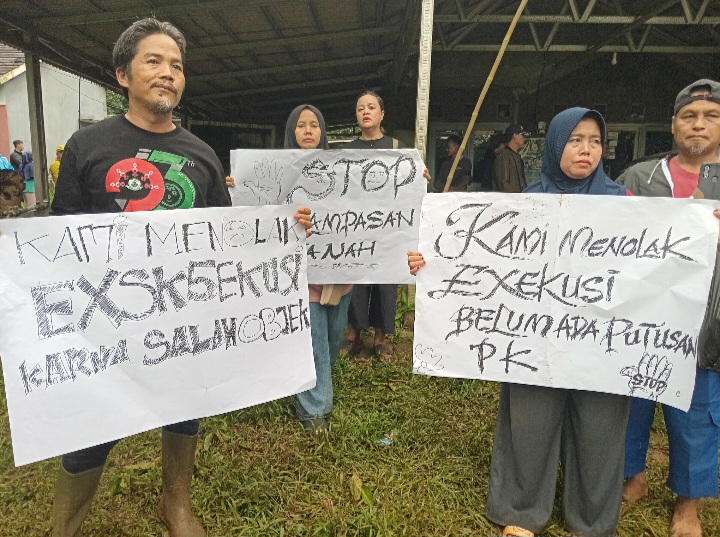 KAMI MENOLAK
EXSKSEKUSI
KARNA SALAH OBJEK
STOP
AMPASAN
ANAH
KAMI MENOLAK
EXEKUSI
BELUM ADA PUTUSAN
PK
STOP
7th